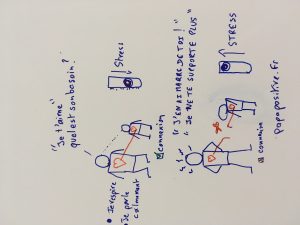 "Je t'aime"
quel est son besoin?
STRESS
Je respire
Je parle calmement
☑ connexion
"J'EN AI MARRE DE TOI!"
"JE NE TE SUPPORTE PLUS"
STRESS
☒ connexion
papapositive.fr